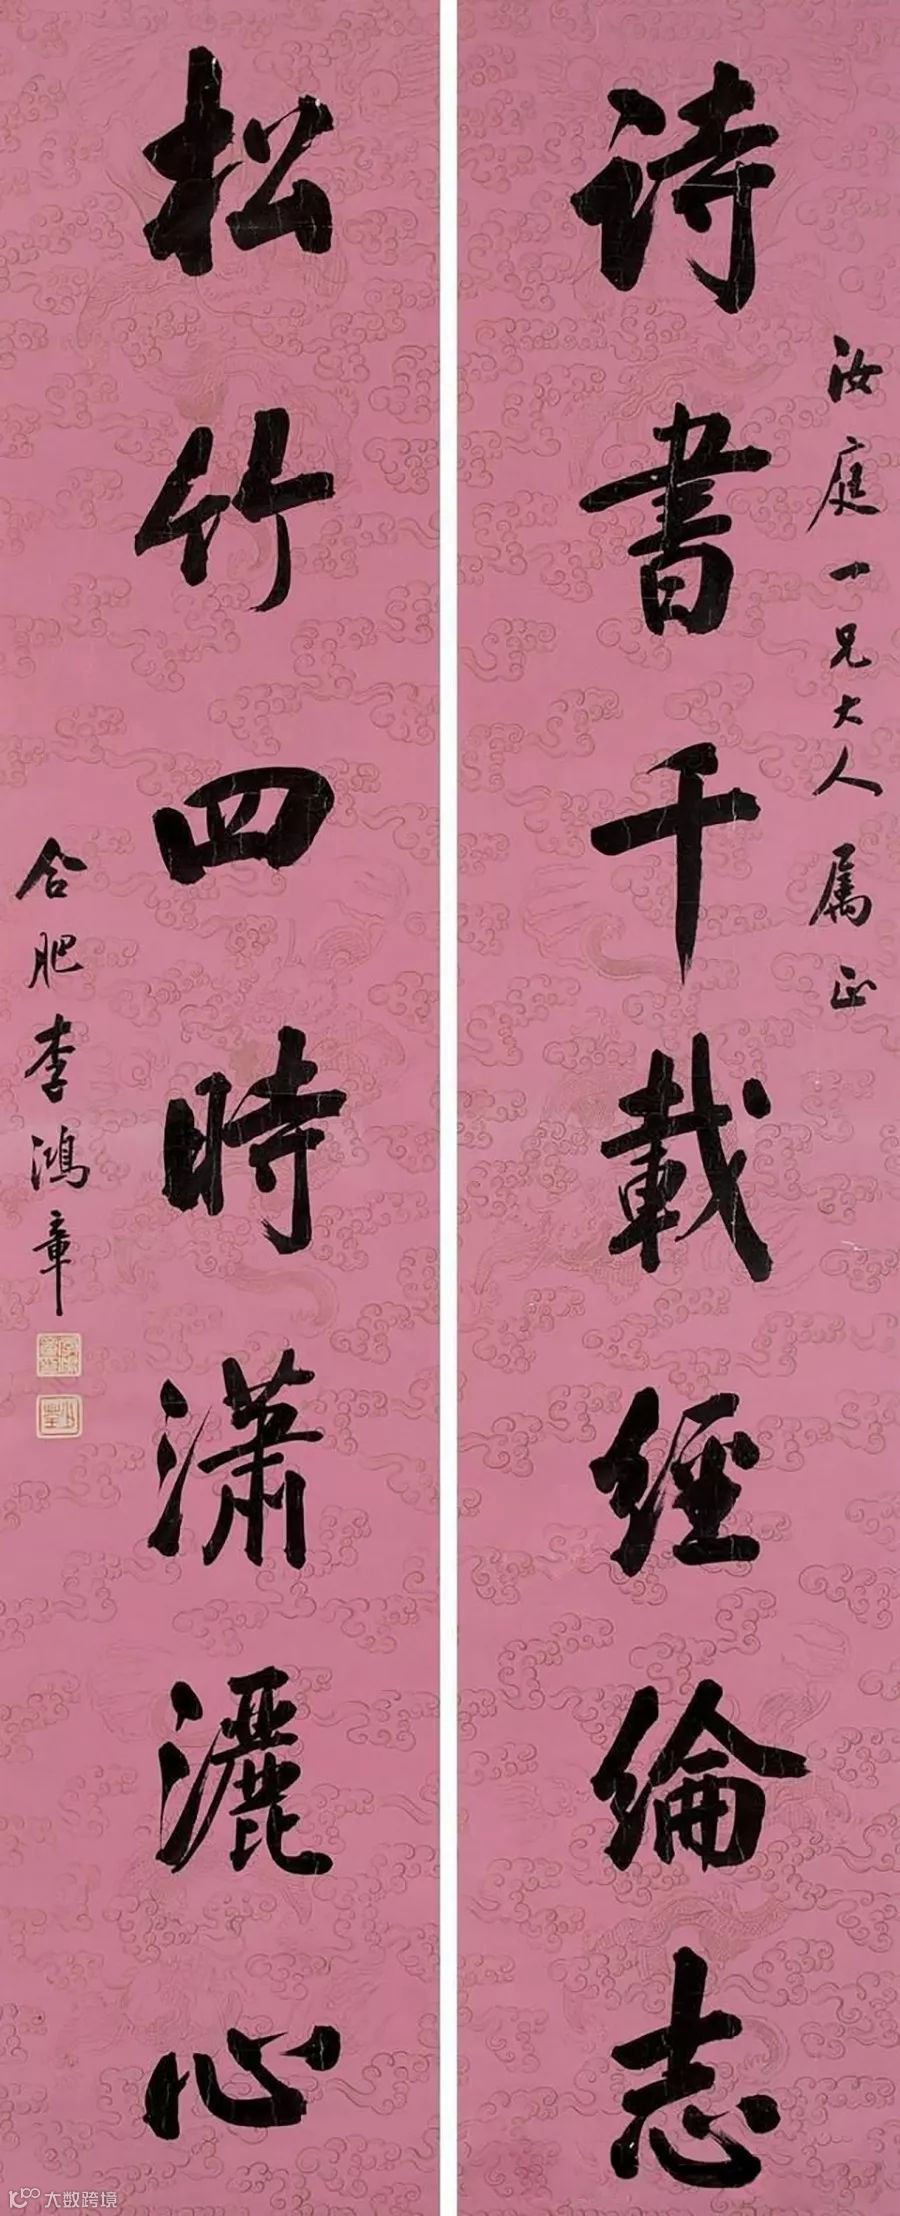 汝庭一兄大人属正
诗書千載經綸志
松竹四時瀟灑心
合肥李鴻章
大数跨境